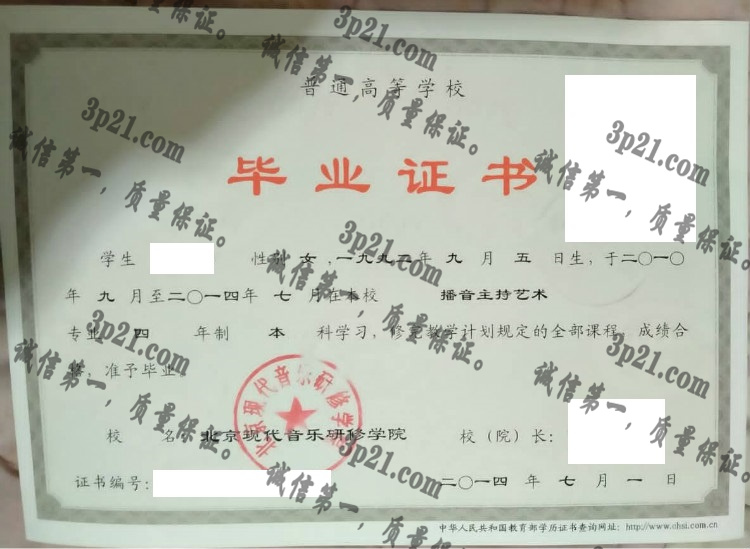 普通高等学校
毕业证书
学生 性别 女,一九九二年 九 月 五 日生,于二〇一〇
年 九 月至二〇一四年 七 月在本校 播音主持艺术
专业 四 年制 本 科学习,修完教学计划规定的全部课程,成绩合
格,准予毕业。
北京现代音乐研修学院
校 名 北京现代音乐研修学院 校(院)长:
证书编号: 二〇一四 年 七 月 一 日
中华人民共和国教育部学历证书查询网址:http://www.chsi.com.cn
3p21.com
诚信第一,质量保证。
3p21.com
诚信第一,质量保证。
3p21.com
诚信第一,质量保证。
3p21.com
诚信第一,质量保证。
3p21.com
诚信第一,质量保证。
3p21.com
诚信第一,质量保证。
3p21.com
诚信第一,质量保证。